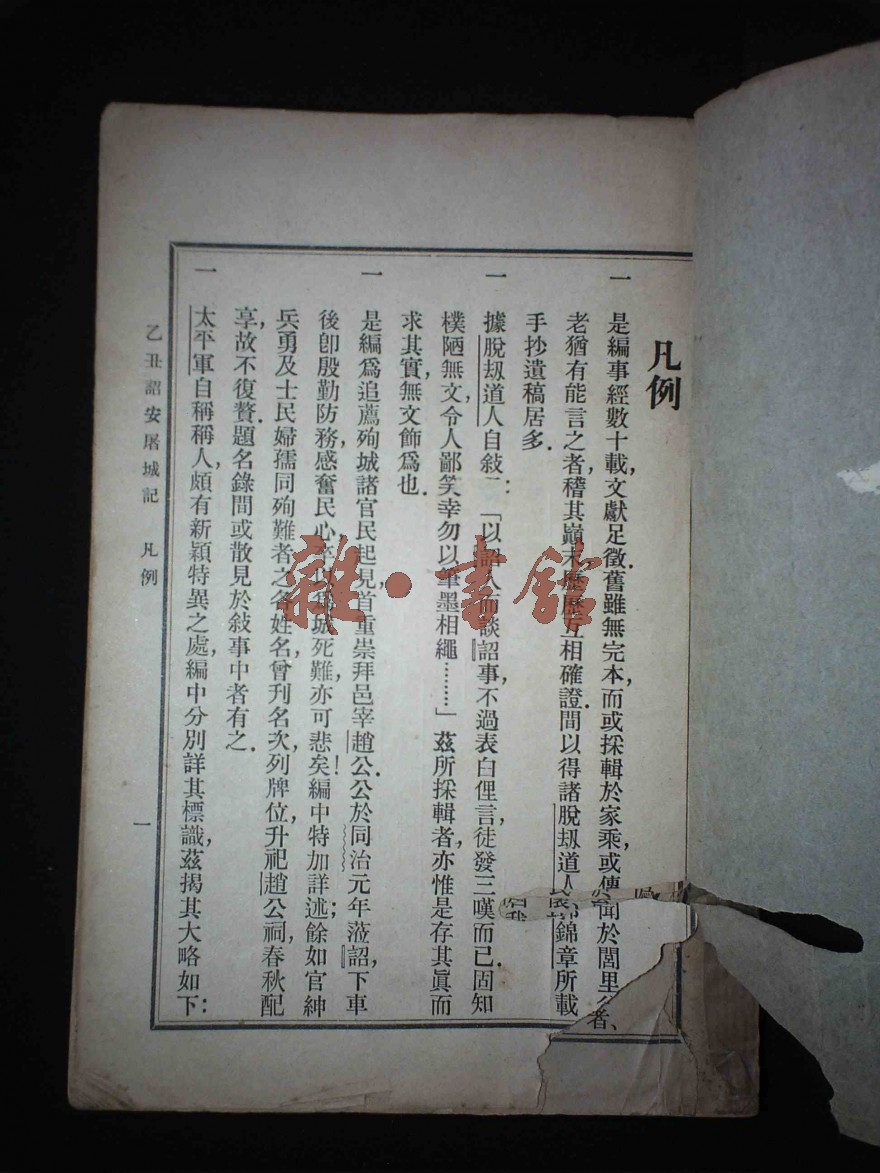 凡例
一 是編事經數十載，文獻足徵．舊雖無完本，而或採輯於家乘，或傳聞於閭里父老者、
老猶有能言之者，稽其巔末，歷歷互相確證．間以得諸脫刼道人 錦章所載
手抄遺稿居多．
一 據脫刼道人自敍：「以詔人而談詔事，不過表白俚言，徒發三嘆而已．固知
樸陋無文，令人鄙笑，幸勿以筆墨相繩………」茲所採輯者，亦惟是存其眞而
求其實，無文飾爲也．
一 是編爲追薦殉城諸官民起見，首重崇拜邑宰趙公．公於同治元年蒞詔，下車
後卽殷勤防務，感奮民心，卒以爲城死難，亦可悲矣！編中特加詳述；餘如官紳
兵勇及士民婦孺同殉難者之各姓名，曾刊名次，列牌位，升祀趙公祠，春秋配
享，故不復贅．題名錄間或散見於敍事中者有之．
一 太平軍自稱稱人，頗有新穎特異之處，編中分別詳其標識，茲揭其大略如下：
乙丑詔安屠城記 凡例 一
雜·書館